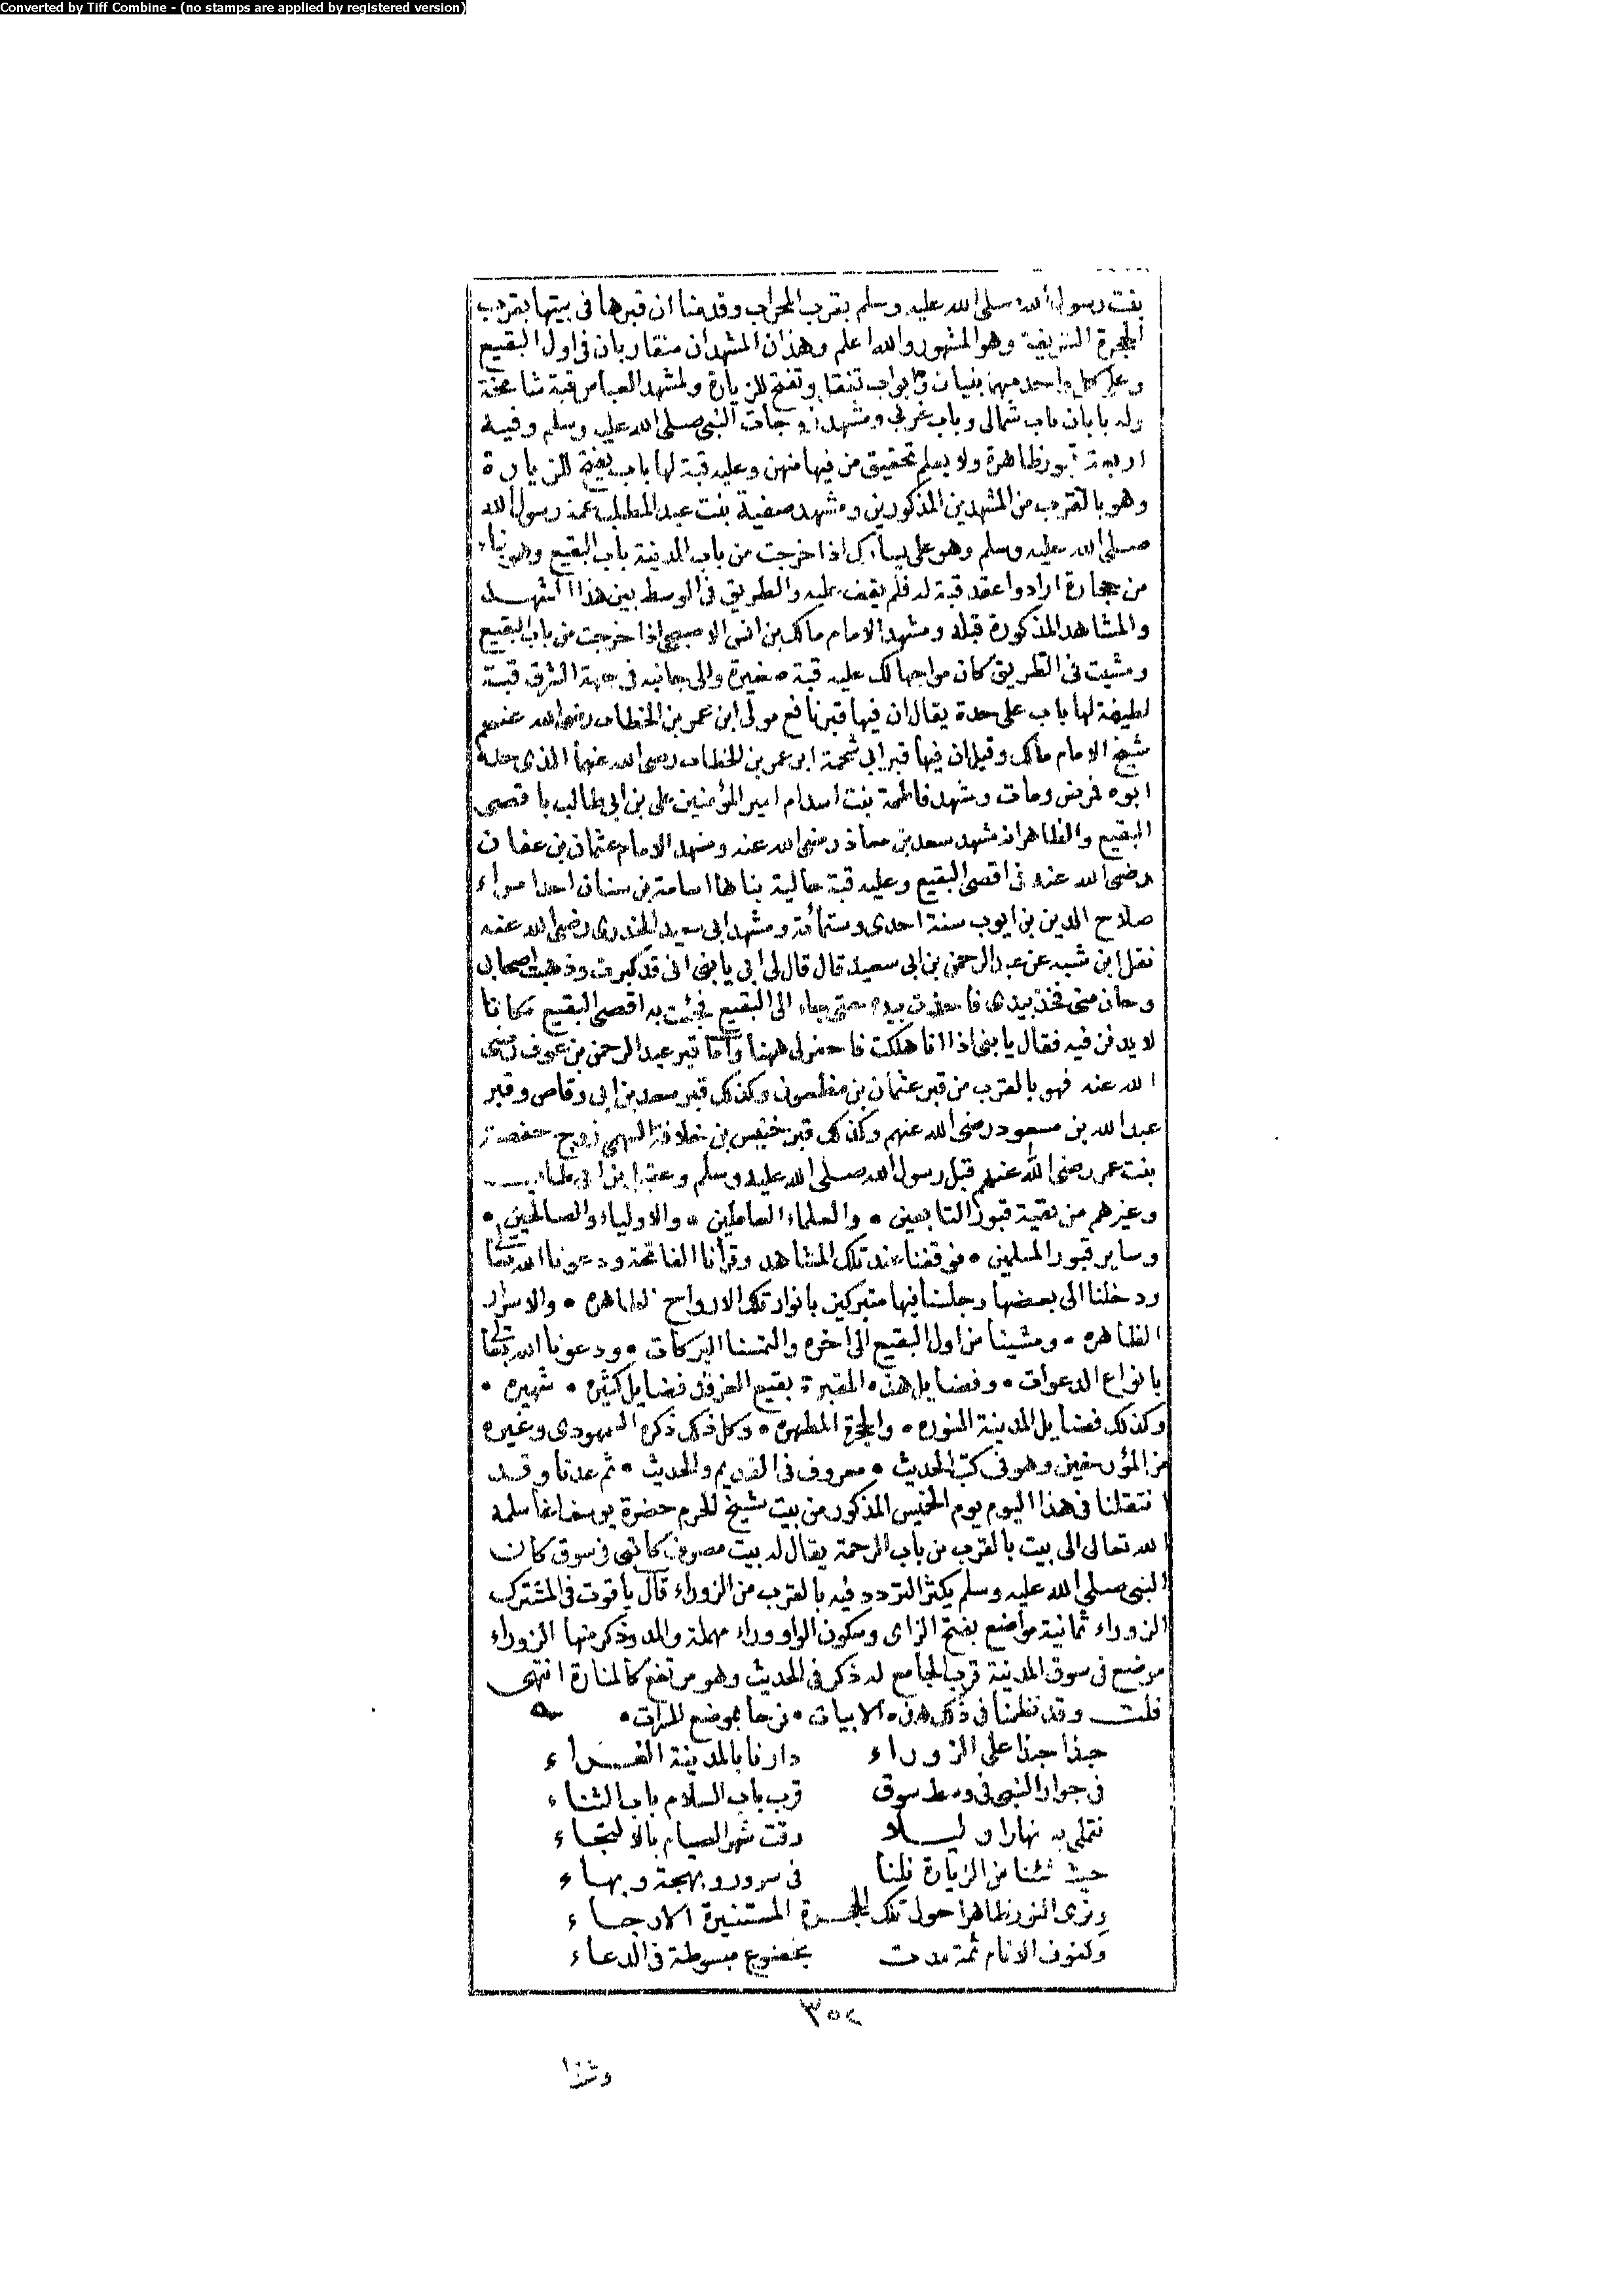 Converted by Tiff Combine - (no stamps are applied by registered version)
بنت رسول الله صلى الله عليه وسلم بقرب المحراب وقدمنا ان قبرها فى بيتها بقرب
الحجرة الشريفة وهو المشهور والله اعلم وهذان المشهدان متقاربان فى اول البقيع
وعلى كل واحد منهما بنيان وابواب تقفل وتفتح للزيارة ولمشهد العباس قبة شامخة
وله بابان باب شمالى وباب غربى ومشهد زوجات النبى صلى الله عليه وسلم وفيه
اربعة قبور ظاهرة ولا يعلم تحقيق من فيها منهن وعليه قبة لها باب يفتح للزيارة
وهو بالقرب من المشهدين المذكورين ومشهد صفية بنت عبد المطلب عمة رسول الله
صلى الله عليه وسلم وهو على يسارك اذا خرجت من باب المدينة باب البقيع وهو بناء
من حجارة ارادوا عقد قبة له فلم يتفق عليه والطريق فى الوسط بين هذا المشهد
والمشاهد المذكورة قبله ومشهد الامام مالك بن انس الاصبحى اذا خرجت من باب البقيع
ومشيت فى الطريق كان مواجها لك عليه قبة صغيرة والى جانبه فى جهة الشرق قبة
لطيفة لها باب على حدة يقال ان فيها قبر نافع مولى ابن عمر بن الخطاب رضى الله عنهم
شيخ الامام مالك وقيل ان فيها قبر ابى شحمة ابن عمر بن الخطاب رضى الله عنهما الذى جلده
ابوه فمرض ومات ومشهد فاطمة بنت اسد ام امير المؤمنين على بن ابى طالب باقصى
البقيع والظاهر انه مشهد سعد بن معاذ رضى الله عنه ومشهد الامام عثمان بن عفان
رضى الله عنه فى اقصى البقيع وعليه قبة عالية بناها اسامة بن سنان احد امراء
صلاح الدين بن ايوب سنة احدى وستمائة ومشهد ابى سعيد الخدرى رضى الله عنه
نقل ابن شبه عن عبد الرحمن بن ابى سعيد قال قال لى ابى يا بنى انى قد كبرت وذهب اصحابى
وحان منى فخذ بيدى فاخذت بيده حتى جاء الى البقيع فجئت به اقصى البقيع مكانا
لا يدفن فيه فقال يا بنى اذا انا هلكت فاحفر لى ههنا واما قبر عبد الرحمن بن عوف رضى
الله عنه فهو بالقرب من قبر عثمان بن مظعون وكذلك قبر سعد بن ابى وقاص وقبر
عبد الله بن مسعود رضى الله عنهم وكذلك قبر خنيس بن حذافة السهمى زوج حفصة
بنت عمر رضى الله عنهم قبل رسول الله صلى الله عليه وسلم
وغيرهم من بقية قبور التابعين • والعلماء العاملين • والاولياء والصالحين •
وساير قبور المسلمين • فوقفنا عند تلك المشاهد وقرأنا الفاتحة ودعونا الله تعالى
ودخلنا الى بعضها وجلسنا فيها متبركين بانوار تلك الارواح الطاهره • والاسرار
الظاهره • ومشينا من اول البقيع الى اخره والتمسنا البركات • ودعونا الله تعالى
بانواع الدعوات • وفضايل هذه المقبرة بقيع الغرقد فضايل كثيره • شهيره •
وكذلك فضايل المدينة المنوره • والحجرة المطهره • وكل ذلك ذكره السمهودى وغيره
من المؤرخين وهو فى كتب الحديث • معروف فى القديم والحديث • ثم عدنا وقد
انتقلنا فى هذا اليوم يوم الخميس المذكور من بيت شيخ الحرم حضرة يوسف اغا سلمه
الله تعالى الى بيت بالقرب من باب الرحمة يقال له بيت مصرف كاتبى فى سوق كان
النبى صلى الله عليه وسلم يكثر التردد فيه بالقرب من الزوراء قال ياقوت فى المشترك
الزوراء ثمانية مواضع بفتح الزاى وسكون الواو وراء مهملة والمد وذكر منها الزوراء
موضع فى سوق المدينة قرب الجامع له ذكر فى الحديث وهو مرتفع كالمنارة انتهى
قلت وقد نظمنا فى ذلك هذه الابيات • فرحا بموضع المبرات •
حبذا حبذا على الزوراء دارنا بالمدينة الغراء
فى جوار النبى فى وسط سوق قرب باب السلام باب الثناء
نتملى به نهارا وليلا وقت شهر الصيام بالالتجاء
حيث شئنا من الزيارة نلنا فى سرور وبهجة وبهاء
ونرى النور ظاهرا حول تلك الحجرة المستنيرة الارجاء
وكفوف الانام ثمة مدت بخضوع مبسوطة فى الدعاء
٣٥٢
وشذا